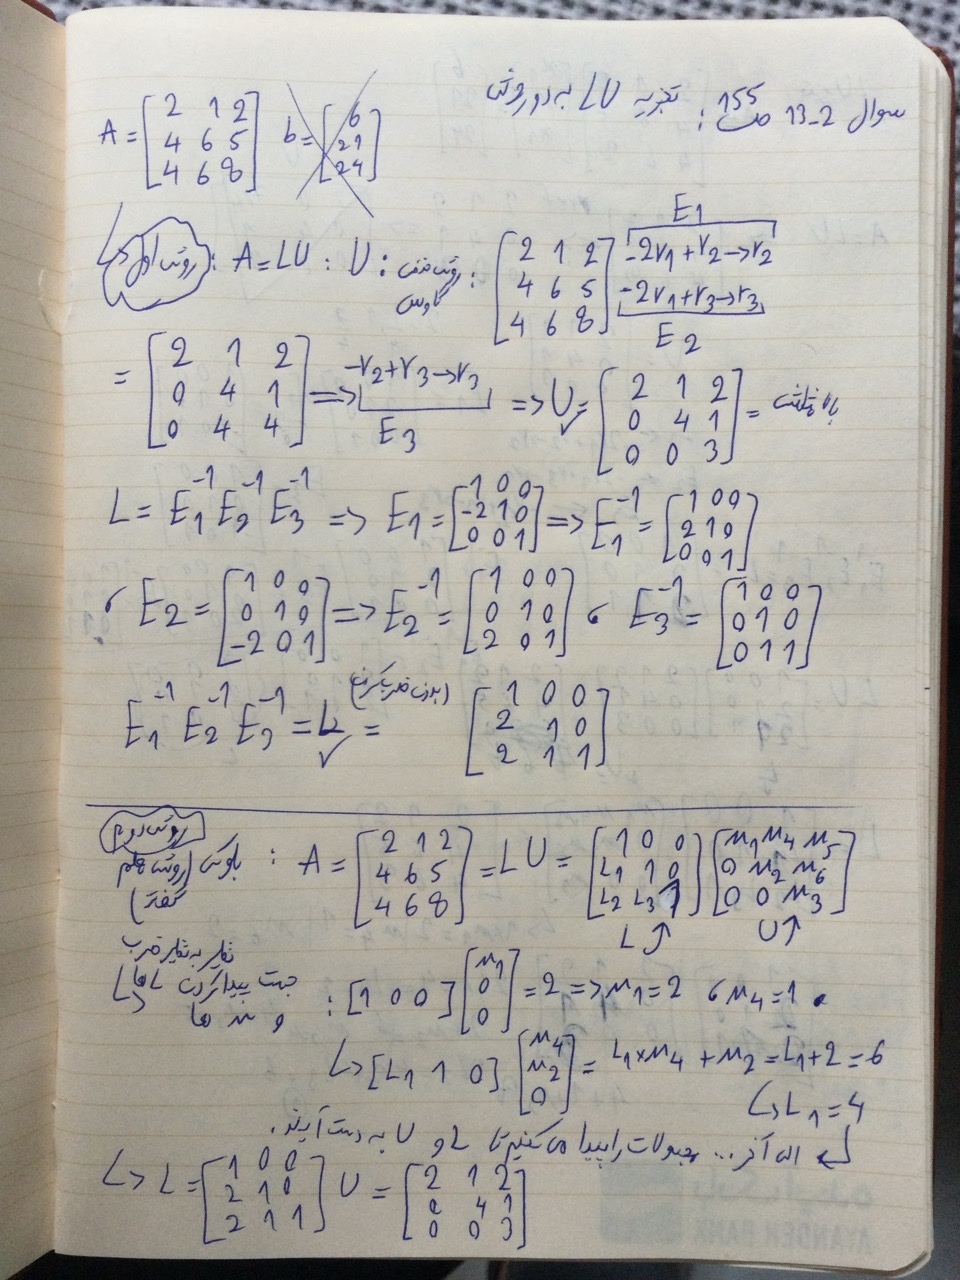 سوال 2-13 ص 155 : تجزیه LU به دو روش
A = [2 1 2; 4 6 5; 4 6 8] b = [6; 21; 24]
روش اول : A = LU : U : روش حذفی گاوس : [2 1 2; 4 6 5; 4 6 8] E1 -2r1+r2→r2 -2r1+r3→r3 E2
= [2 1 2; 0 4 1; 0 4 4] => -r2+r3→r3 E3 => U = [2 1 2; 0 4 1; 0 0 3] =
L = E1⁻¹ E2⁻¹ E3⁻¹ => E1 = [1 0 0; -2 1 0; 0 0 1] => E1⁻¹ = [1 0 0; 2 1 0; 0 0 1]
، E2 = [1 0 0; 0 1 0; -2 0 1] => E2⁻¹ = [1 0 0; 0 1 0; 2 0 1] ، E3⁻¹ = [1 0 0; 0 1 0; 0 1 1]
E1⁻¹ E2⁻¹ E3⁻¹ = L = (بدون ضرب کردن) [1 0 0; 2 1 0; 2 1 1]
روش دوم
: A = [2 1 2; 4 6 5; 4 6 8] = LU = [1 0 0; L1 1 0; L2 L3 1] [u1 u4 u5; 0 u2 u6; 0 0 u3]
(روش هم گفت)
L ↑ U ↑
نظیر به نظیر ضرب
جهت پیدا کردن Lها و : [1 0 0] [u1; 0; 0] = 2 => u1 = 2 ، u4 = 1 .
↳ [L1 1 0] [u4; u2; 0] = L1×u4 + u2 = L1+2 = 6
↳ L1 = 4
الی آخر ... مجهولات را پیدا می کنیم تا L و U به دست آیند.
↳ L = [1 0 0; 2 1 0; 2 1 1] U = [2 1 2; 0 4 1; 0 0 3]